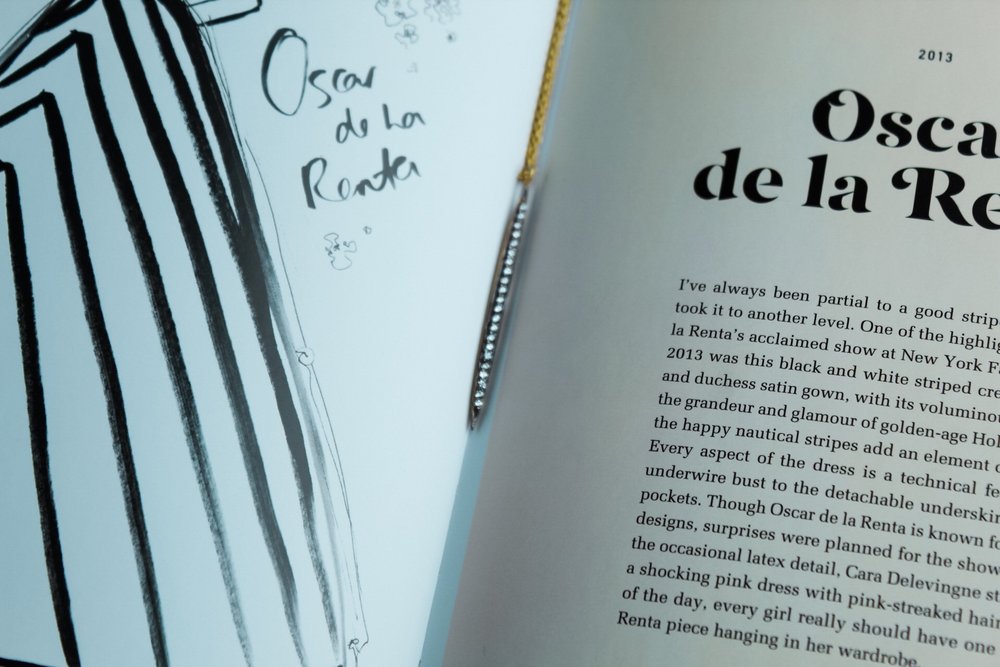 Oscar
de La
Renta
2013
Osca
de la Re
I've always been partial to a good strip
took it to another level. One of the highlig
la Renta's acclaimed show at New York F
2013 was this black and white striped cre
and duchess satin gown, with its voluminou
the grandeur and glamour of golden-age Hol
the happy nautical stripes add an element o
Every aspect of the dress is a technical fe
underwire bust to the detachable underskir
pockets. Though Oscar de la Renta is known fo
designs, surprises were planned for the show
the occasional latex detail, Cara Delevingne st
a shocking pink dress with pink-streaked hair
of the day, every girl really should have one
Renta piece hanging in her wardrobe